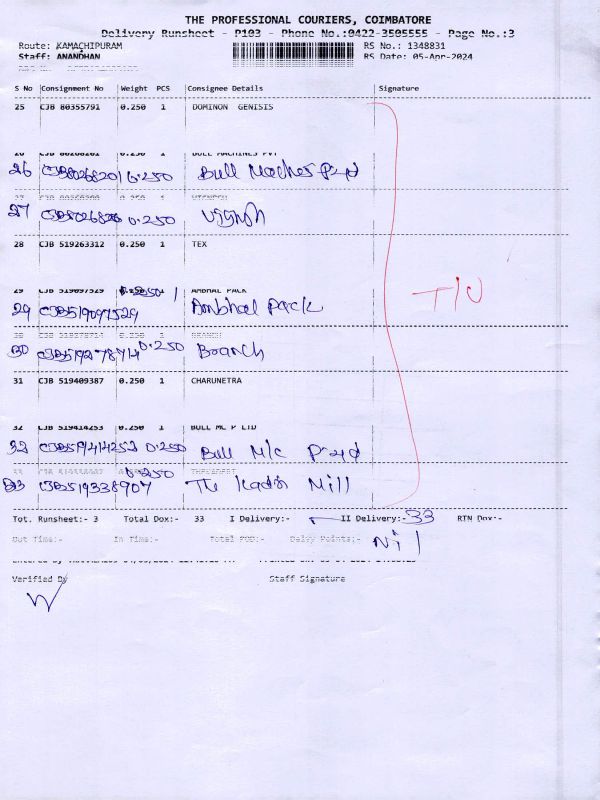 THE PROFESSIONAL COURIERS, COIMBATORE
Delivery Runsheet - P103 - Phone No.:0422-3505555 - Page No.:3
Route: KAMACHIPURAM RS No.: 1348831
Staff: ANANDHAN RS Date: 05-Apr-2024
S No Consignment No Weight PCS Consignee Details Signature
25 CJB 80355791 0.250 1 DOMINON GENISIS
26 CJB 80268201 0.250 1 BULL MACHINES PVT
26 CJB80268201 0.250 Bull Maches P
27
27 0.250 Vignesh
28 CJB 519263312 0.250 1 TEX
29 CJB 519097529 0.250 1 AMBHAL PACK
29 CJB519097529 Ambhal Pack
T/U
30 CJB 519278714 0.250 BRANCH
30 CJB519278714 0.250 Branch
31 CJB 519409387 0.250 1 CHARUNETRA
32 CJB 519414253 0.250 1 BULL MC P LTD
32 CJB519414253 0.250 Bull M/c P
33 0.250
33 CJB519338907 The Mill
Tot. Runsheet:- 3 Total Dox:- 33 I Delivery:- II Delivery:- 33 RTN Dox:-
Out Time:- In Time:- Total POD:- Delay Points:- Nil
Verified By Staff Signature